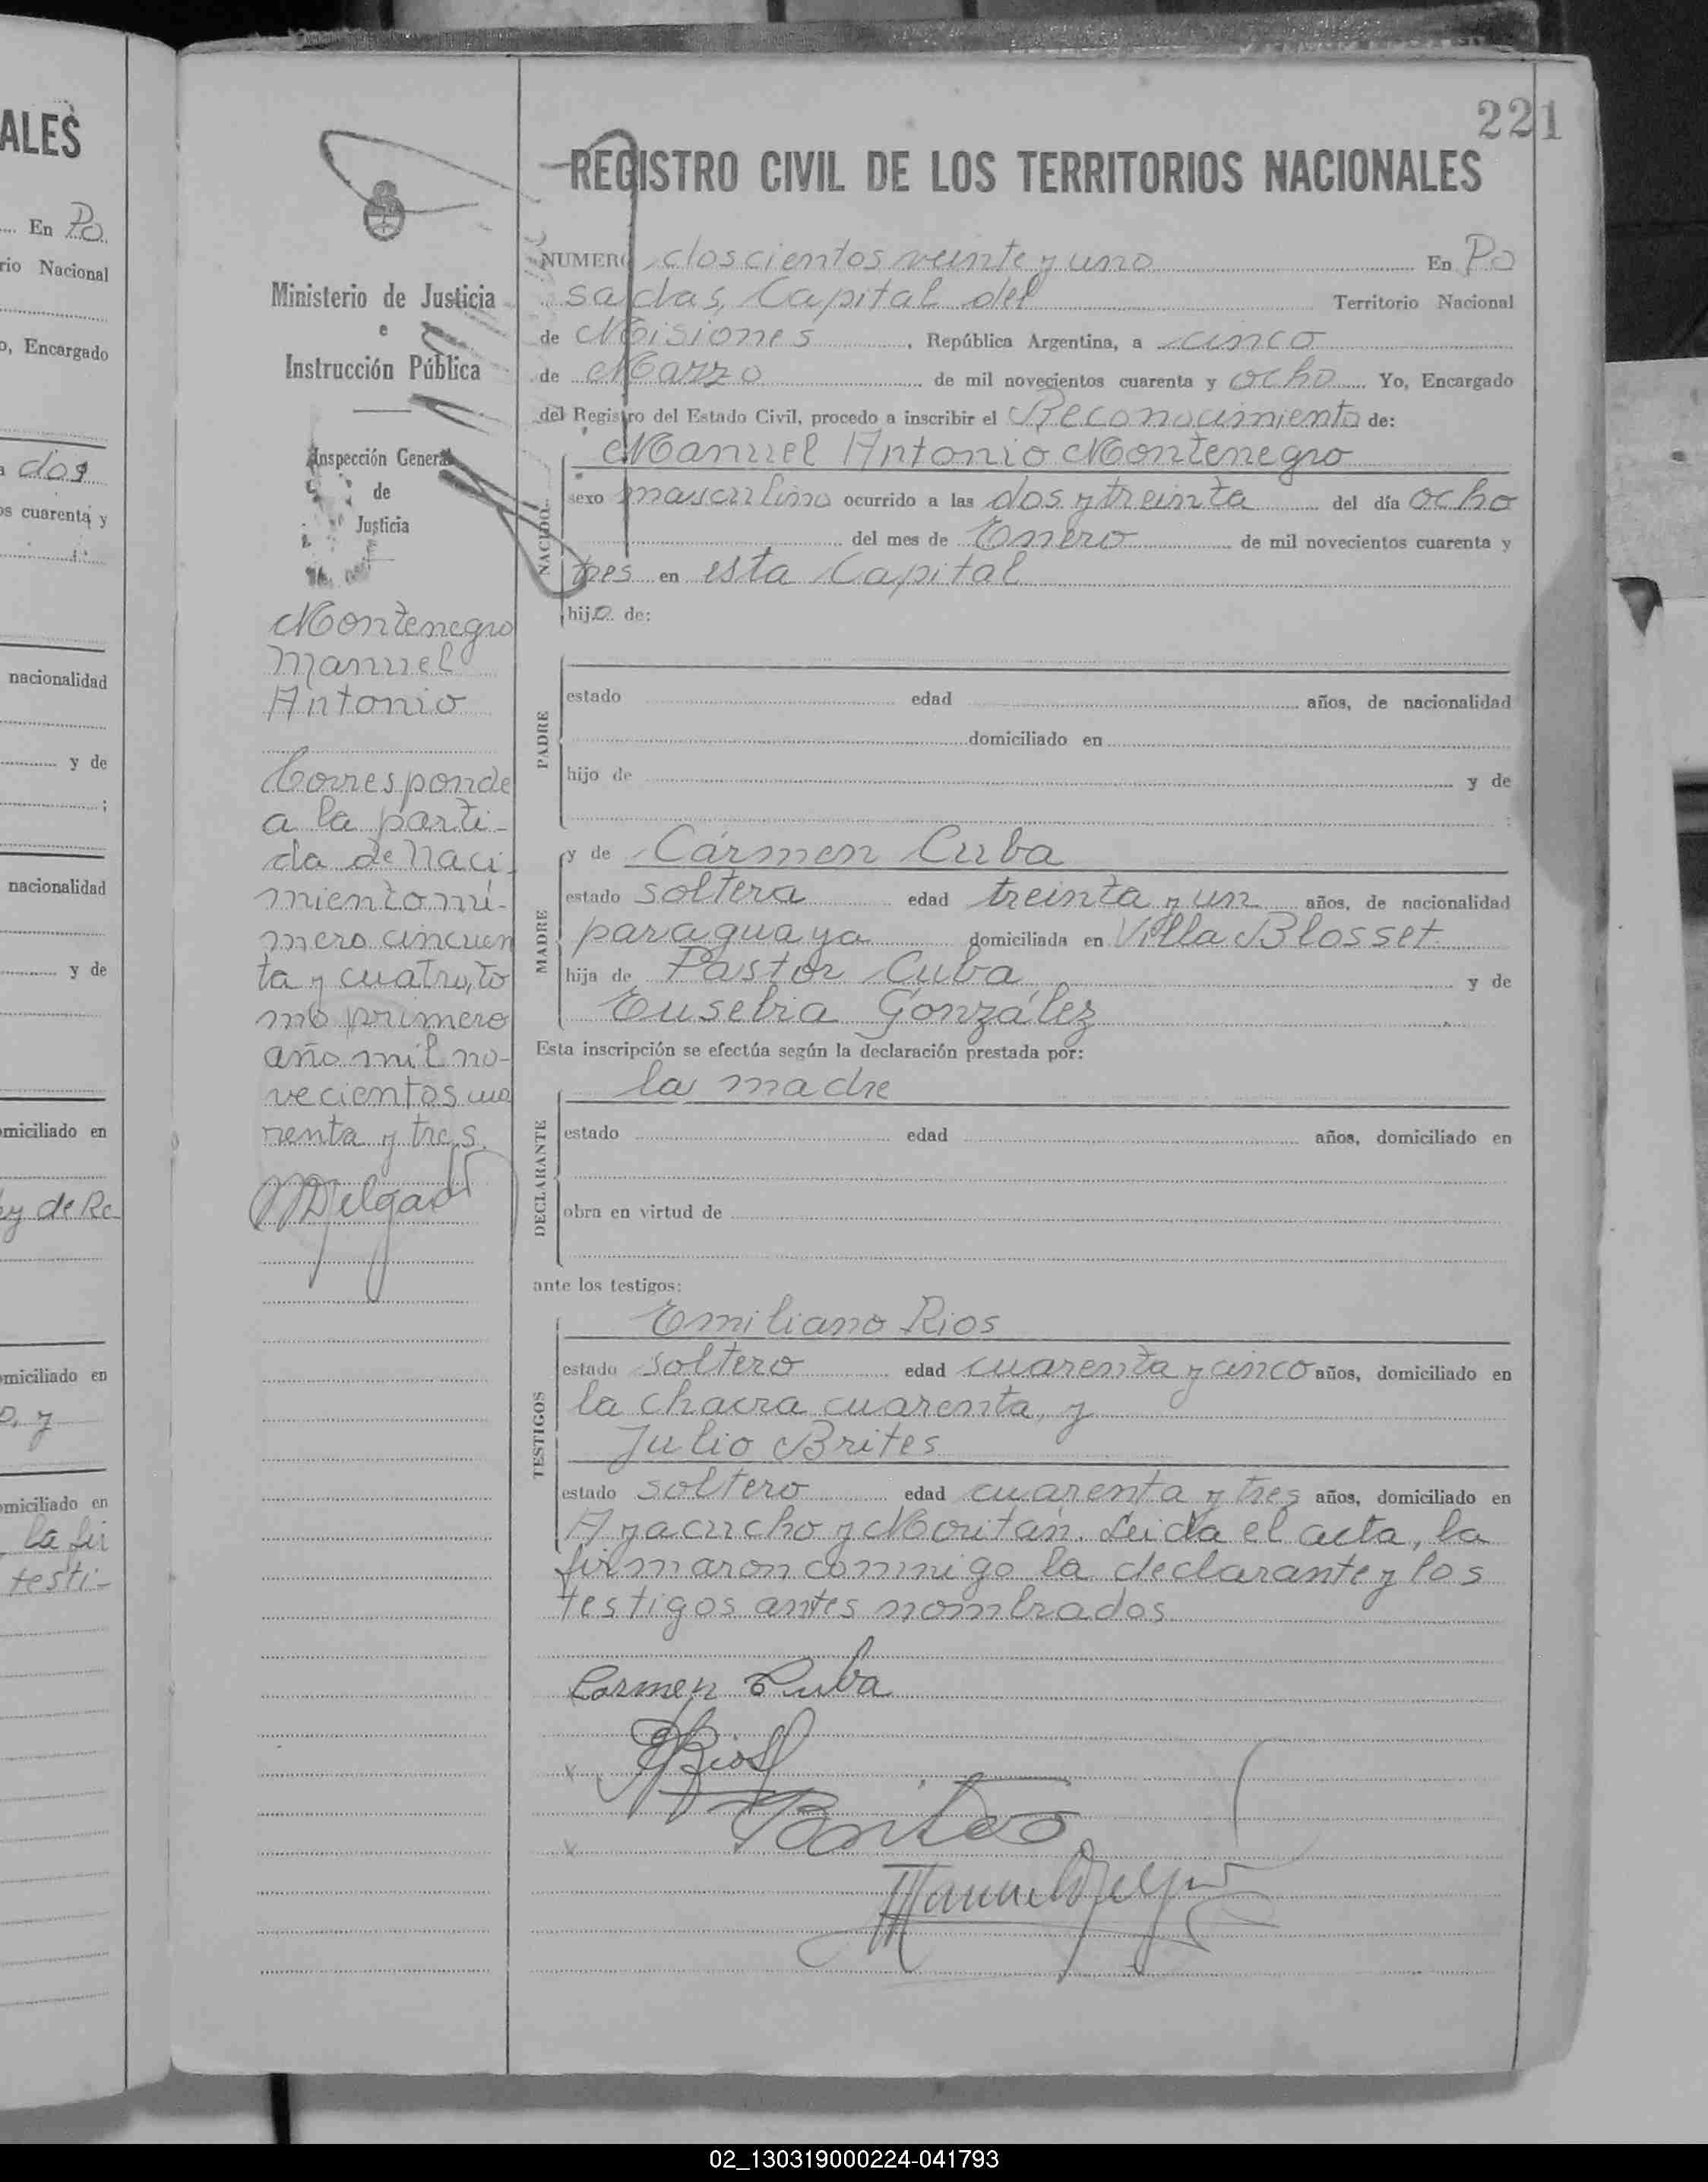 ALES
En Po
rio Nacional
o, Encargado
a dos
os cuarenta y
nacionalidad
y de
;
nacionalidad
y de
omiciliado en
ey de Re
omiciliado en
o, y
omiciliado en
la fir
testi-
221
Ministerio de Justicia
e
Instrucción Pública
Inspección General
de
Justicia
Montenegro
Manuel
Antonio
Corresponde
a la parti-
da de naci-
miento nú-
mero cincuen
ta y cuatro, to
mo primero
año mil no-
vecientos cua
renta y tres.
MDelgado
REGISTRO CIVIL DE LOS TERRITORIOS NACIONALES
NUMERO doscientos veinte y uno En Po
sadas, Capital del Territorio Nacional
de Misiones, República Argentina, a cinco
de Marzo de mil novecientos cuarenta y ocho Yo, Encargado
del Registro del Estado Civil, procedo a inscribir el Reconocimiento de:
NACIDO
Manuel Antonio Montenegro
sexo masculino ocurrido a las dos y treinta del día ocho
del mes de Enero de mil novecientos cuarenta y
tres en esta Capital
hijo de:
PADRE
estado edad años, de nacionalidad
domiciliado en
hijo de y de
MADRE
y de Cármen Cuba
estado soltera edad treinta y un años, de nacionalidad
paraguaya domiciliada en Villa Blosset
hija de Pastor Cuba y de
Eusebia González
Esta inscripción se efectúa según la declaración prestada por:
DECLARANTE
la madre
estado edad años, domiciliado en
obra en virtud de
ante los testigos:
TESTIGOS
Emiliano Rios
estado soltero edad cuarenta y cinco años, domiciliado en
la chacra cuarenta, y
Julio Brites
estado soltero edad cuarenta y tres años, domiciliado en
Ayacucho y Moritán. Leida el acta, la
firmaron conmigo la declarante y los
testigos antes nombrados
Carmen Cuba
ERios
Brites
Manuel Delgado
02_130319000224-041793